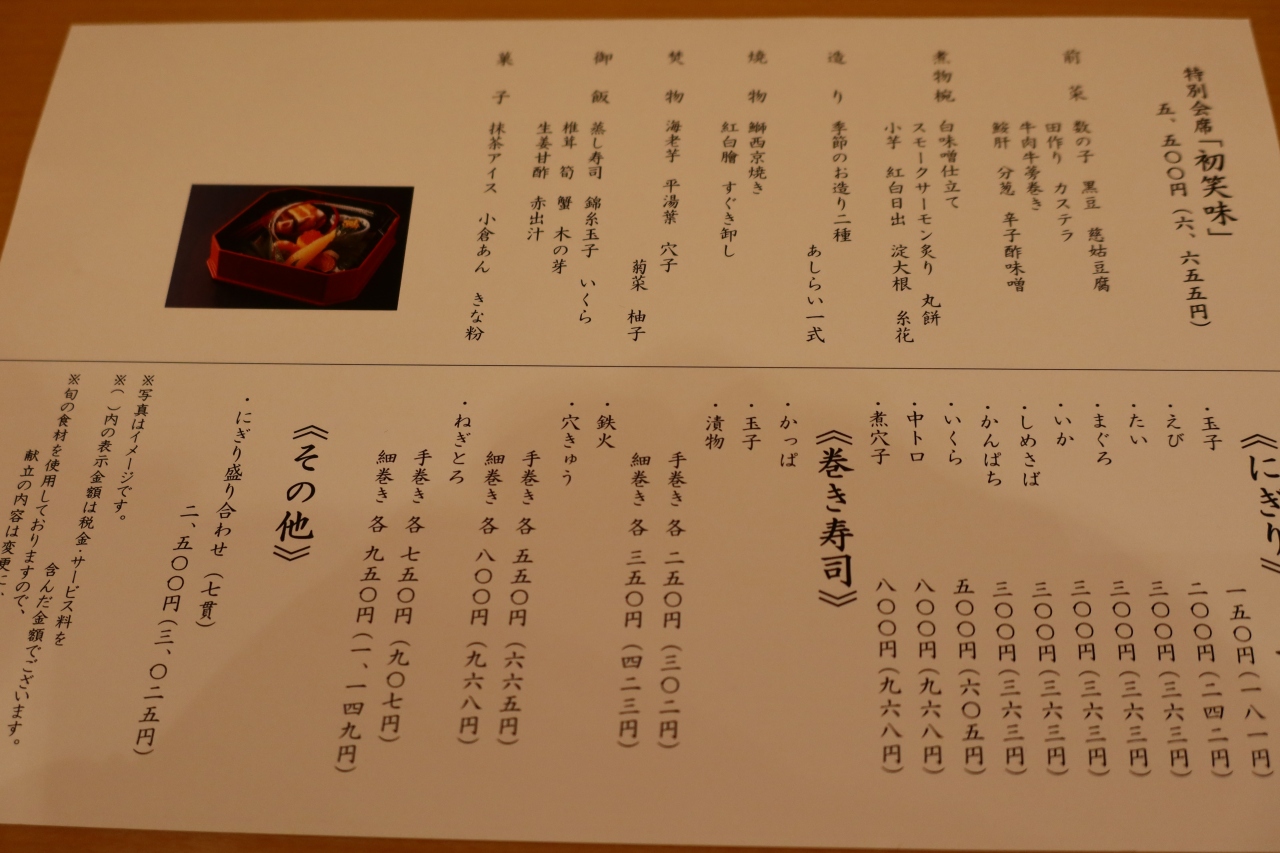 特別会席「初笑味」
五、五〇〇円（六、六五五円）
前菜
数の子　黒豆　慈姑豆腐
田作り　カステラ
牛肉牛蒡巻き
鮟肝　分葱　辛子酢味噌
煮物椀
白味噌仕立て
スモークサーモン炙り　丸餅
小芋　紅白日出　淀大根　糸花
造り
季節のお造り二種
あしらい一式
焼物
鰤西京焼き
紅白膾　すぐき卸し
焚物
海老芋　平湯葉　穴子
菊菜　柚子
御飯
蒸し寿司　錦糸玉子　いくら
椎茸　筍　蟹　木の芽
生姜甘酢　赤出汁
菓子
抹茶アイス　小倉あん　きな粉
《にぎり》
一五〇円（一八一円）
・玉子　二〇〇円（二四二円）
・えび　三〇〇円（三六三円）
・たい　三〇〇円（三六三円）
・まぐろ　三〇〇円（三六三円）
・いか　三〇〇円（三六三円）
・しめさば　三〇〇円（三六三円）
・かんぱち　五〇〇円（六〇五円）
・いくら　八〇〇円（九六八円）
・中トロ　八〇〇円（九六八円）
・煮穴子
《巻き寿司》
・かっぱ
・玉子
・漬物
手巻き　各　二五〇円（三〇二円）
細巻き　各　三五〇円（四二三円）
・鉄火
・穴きゅう
手巻き　各　五五〇円（六六五円）
細巻き　各　八〇〇円（九六八円）
・ねぎとろ
手巻き　各　七五〇円（九〇七円）
細巻き　各　九五〇円（一、一四九円）
《その他》
・にぎり盛り合わせ（七貫）
二、五〇〇円（三、〇二五円）
※写真はイメージです。
※（　）内の表示金額は税金・サービス料を
含んだ金額でございます。
※旬の食材を使用しておりますので、
献立の内容は変更に、